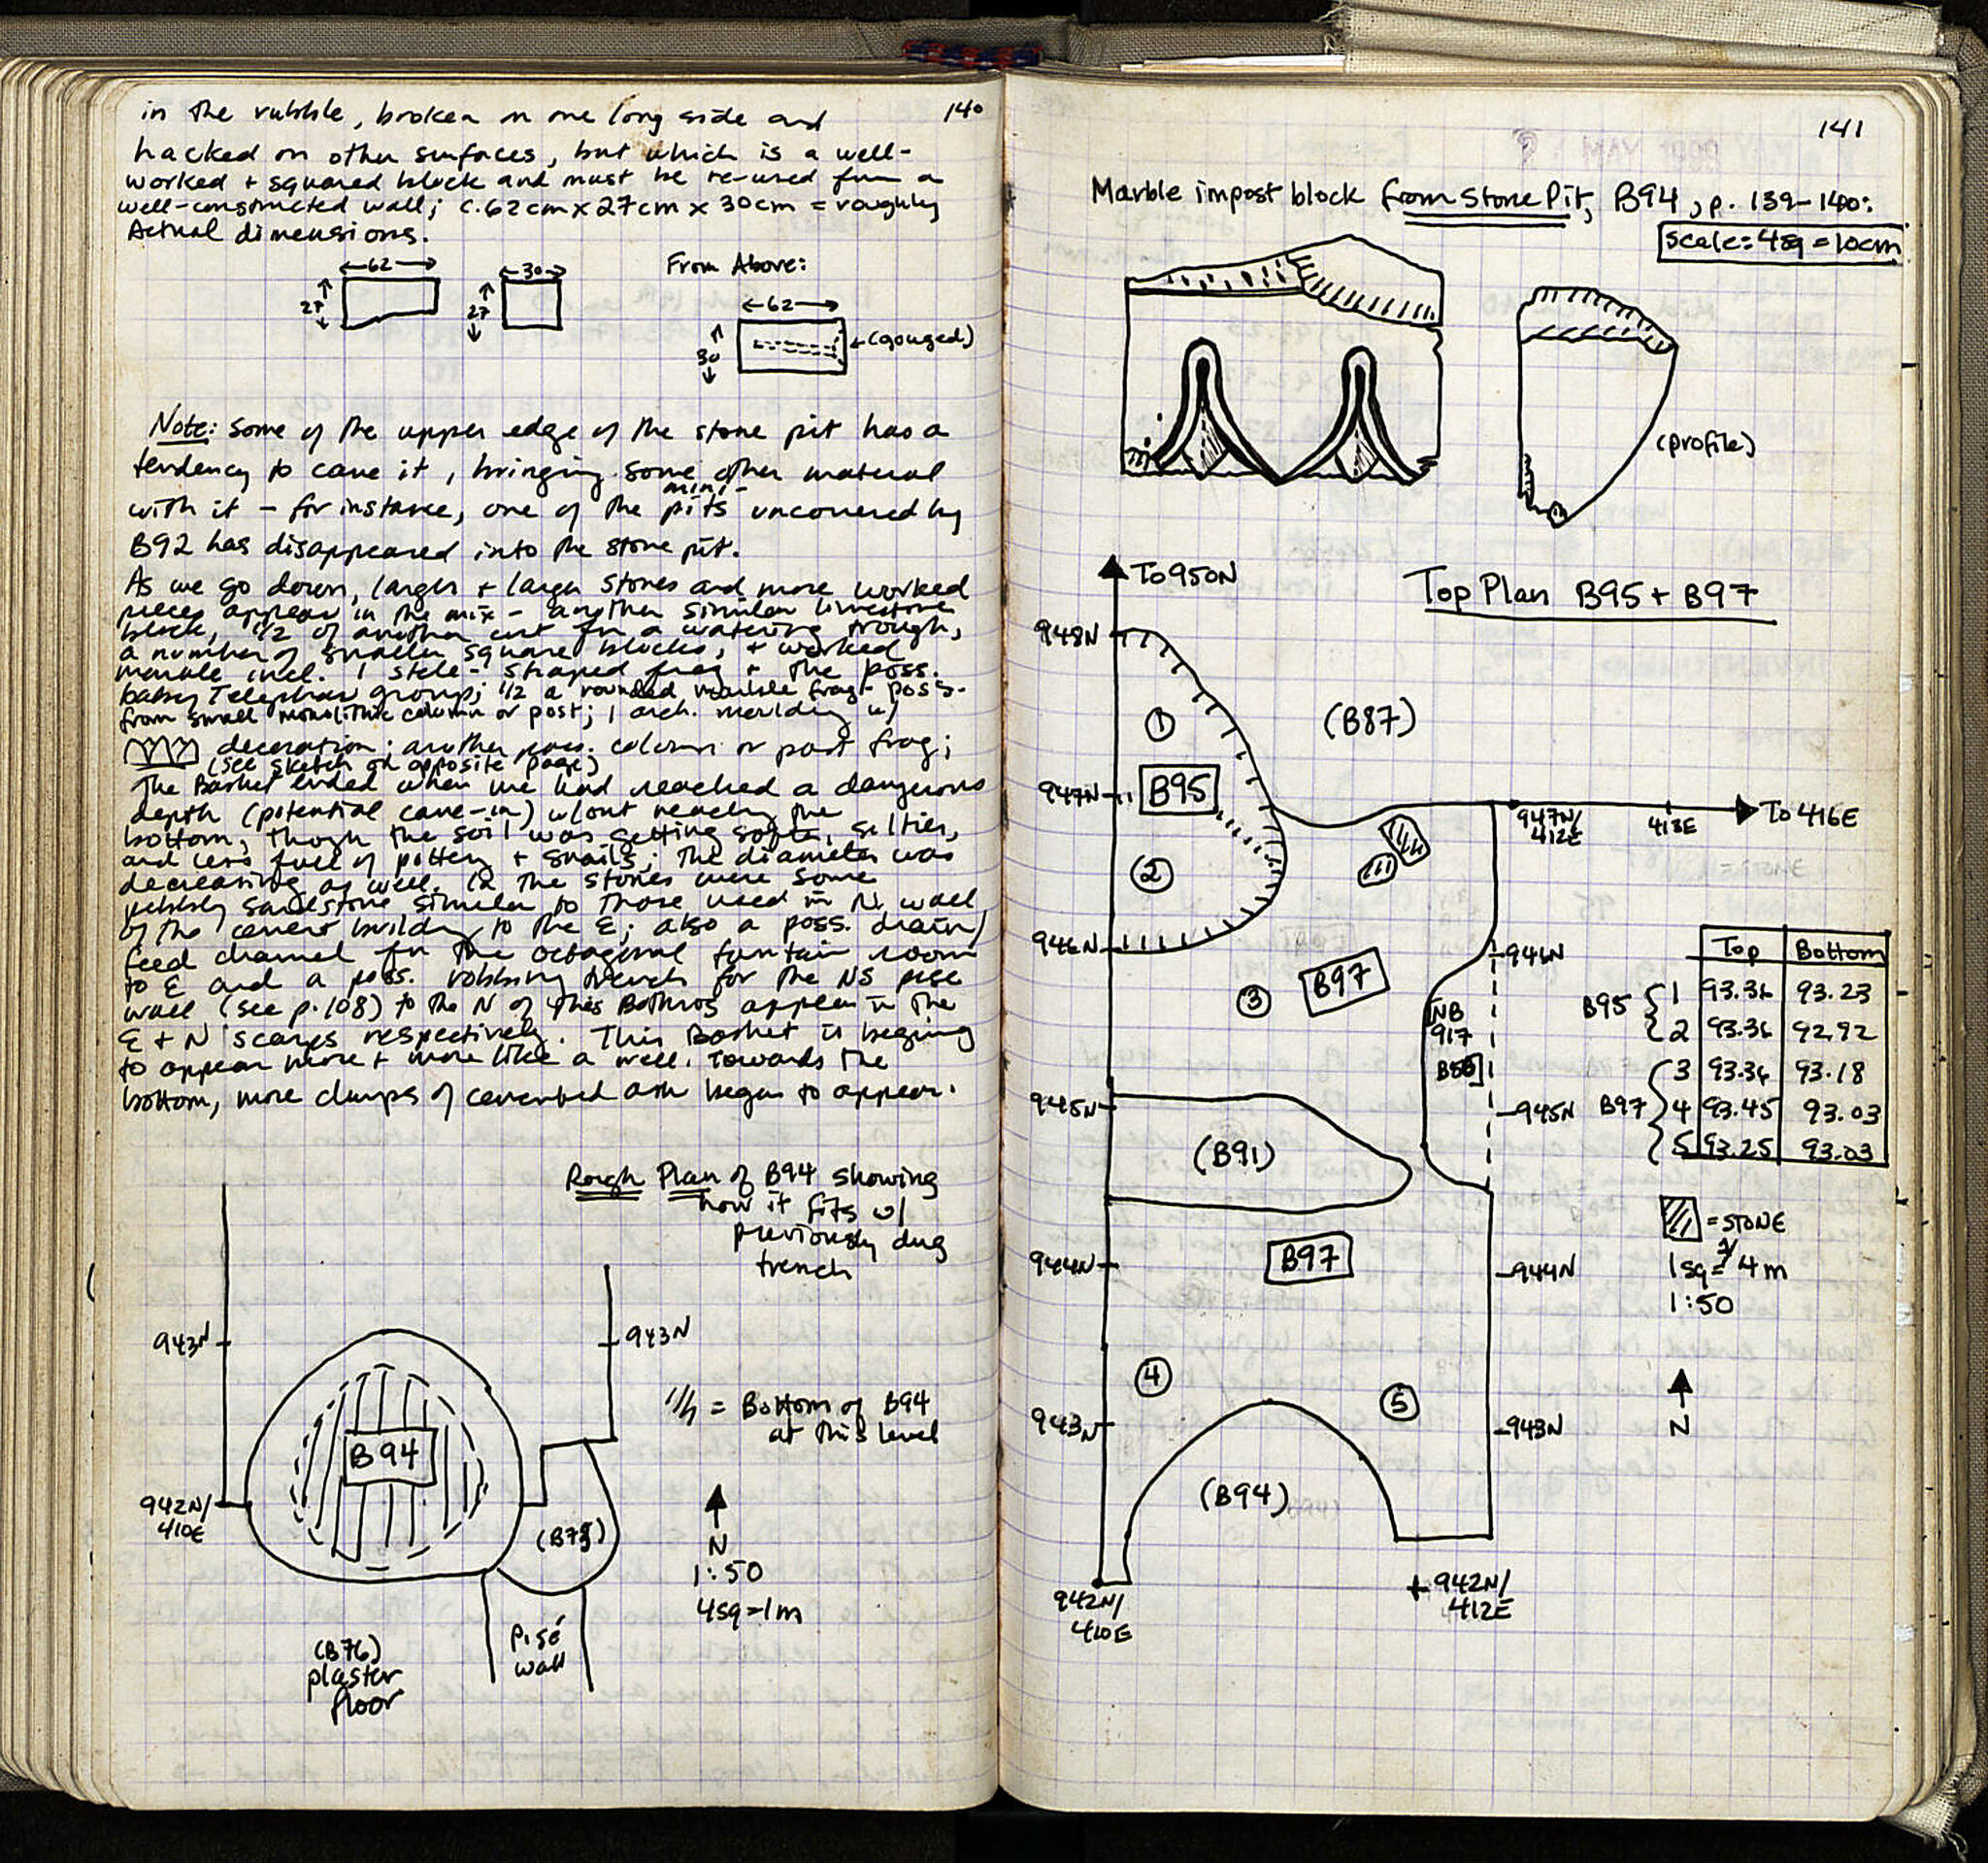 140
in the rubble, broken on one long side and
hacked on other surfaces, but which is a well-
worked + squared block and must be re-used from a
well-constructed wall; c. 62cm x 27cm x 30cm = roughly
Actual dimensions.
←62→
27
←30→
27
From Above:
←62→
30
←(gouged)
Note: some of the upper edge of the stone pit has a
tendency to cave it, bringing some other material
mini-
with it - for instance, one of the pits uncovered by
B92 has disappeared into the stone pit.
As we go down, larger + larger stones and more worked
pieces appear in the mix - another similar limestone
block, 1/2 of another cut for a watering trough,
a number of smaller square blocks, + worked
marble incl. 1 stele-shaped frag + the poss.
baby Telephos group; 1/2 a rounded marble frag - poss.
from small monolithic column or post; 1 arch. moulding w/
decoration; another poss. column or post frag;
(see sketch on opposite page)
The Basket ended when we had reached a dangerous
depth (potential cave-in) w/out reaching the
bottom, though the soil was getting softer, siltier,
and less full of pottery + snails; the diameter was
decreasing as well. the stones were some
pebbly sandstone similar to those used in N. wall
of the cement building to the E; also a poss. drain/
feed channel for the octagonal fountain room
to E and a poss. robbing trench for the NS pise
wall (see p. 108) to the N of this Bothros appear in the
E + N scarps respectively. This Basket is begining
to appear more + more like a well. Towards the
bottom, more clumps of cemented ash began to appear.
Rough Plan of B94 showing
how it fits w/
previously dug
trench
943N
943N
= Bottom of B94
at this level
B94
942N/
410E
(B78)
N
1:50
4sq=1m
(B76)
plaster
floor
Pisé
wall
141
Marble impost block from Stone Pit, B94, p. 139-140:
scale: 4sq = 10cm
(profile)
To 950N
Top Plan B95 + B97
948N
(B87)
1
947N
B95
947N/
412E
413E
To 416E
2
946N
946N
3
B97
NB
917
Top Bottom
B95 1 93.36 93.23
2 93.36 92.92
3 93.34 93.18
B97 4 93.45 93.03
5 93.25 93.03
945N
945N
(B91)
= STONE
944N
B97
944N
1:50
4
5
943N
943N
N
(B94)
942N/
410E
942N/
412E